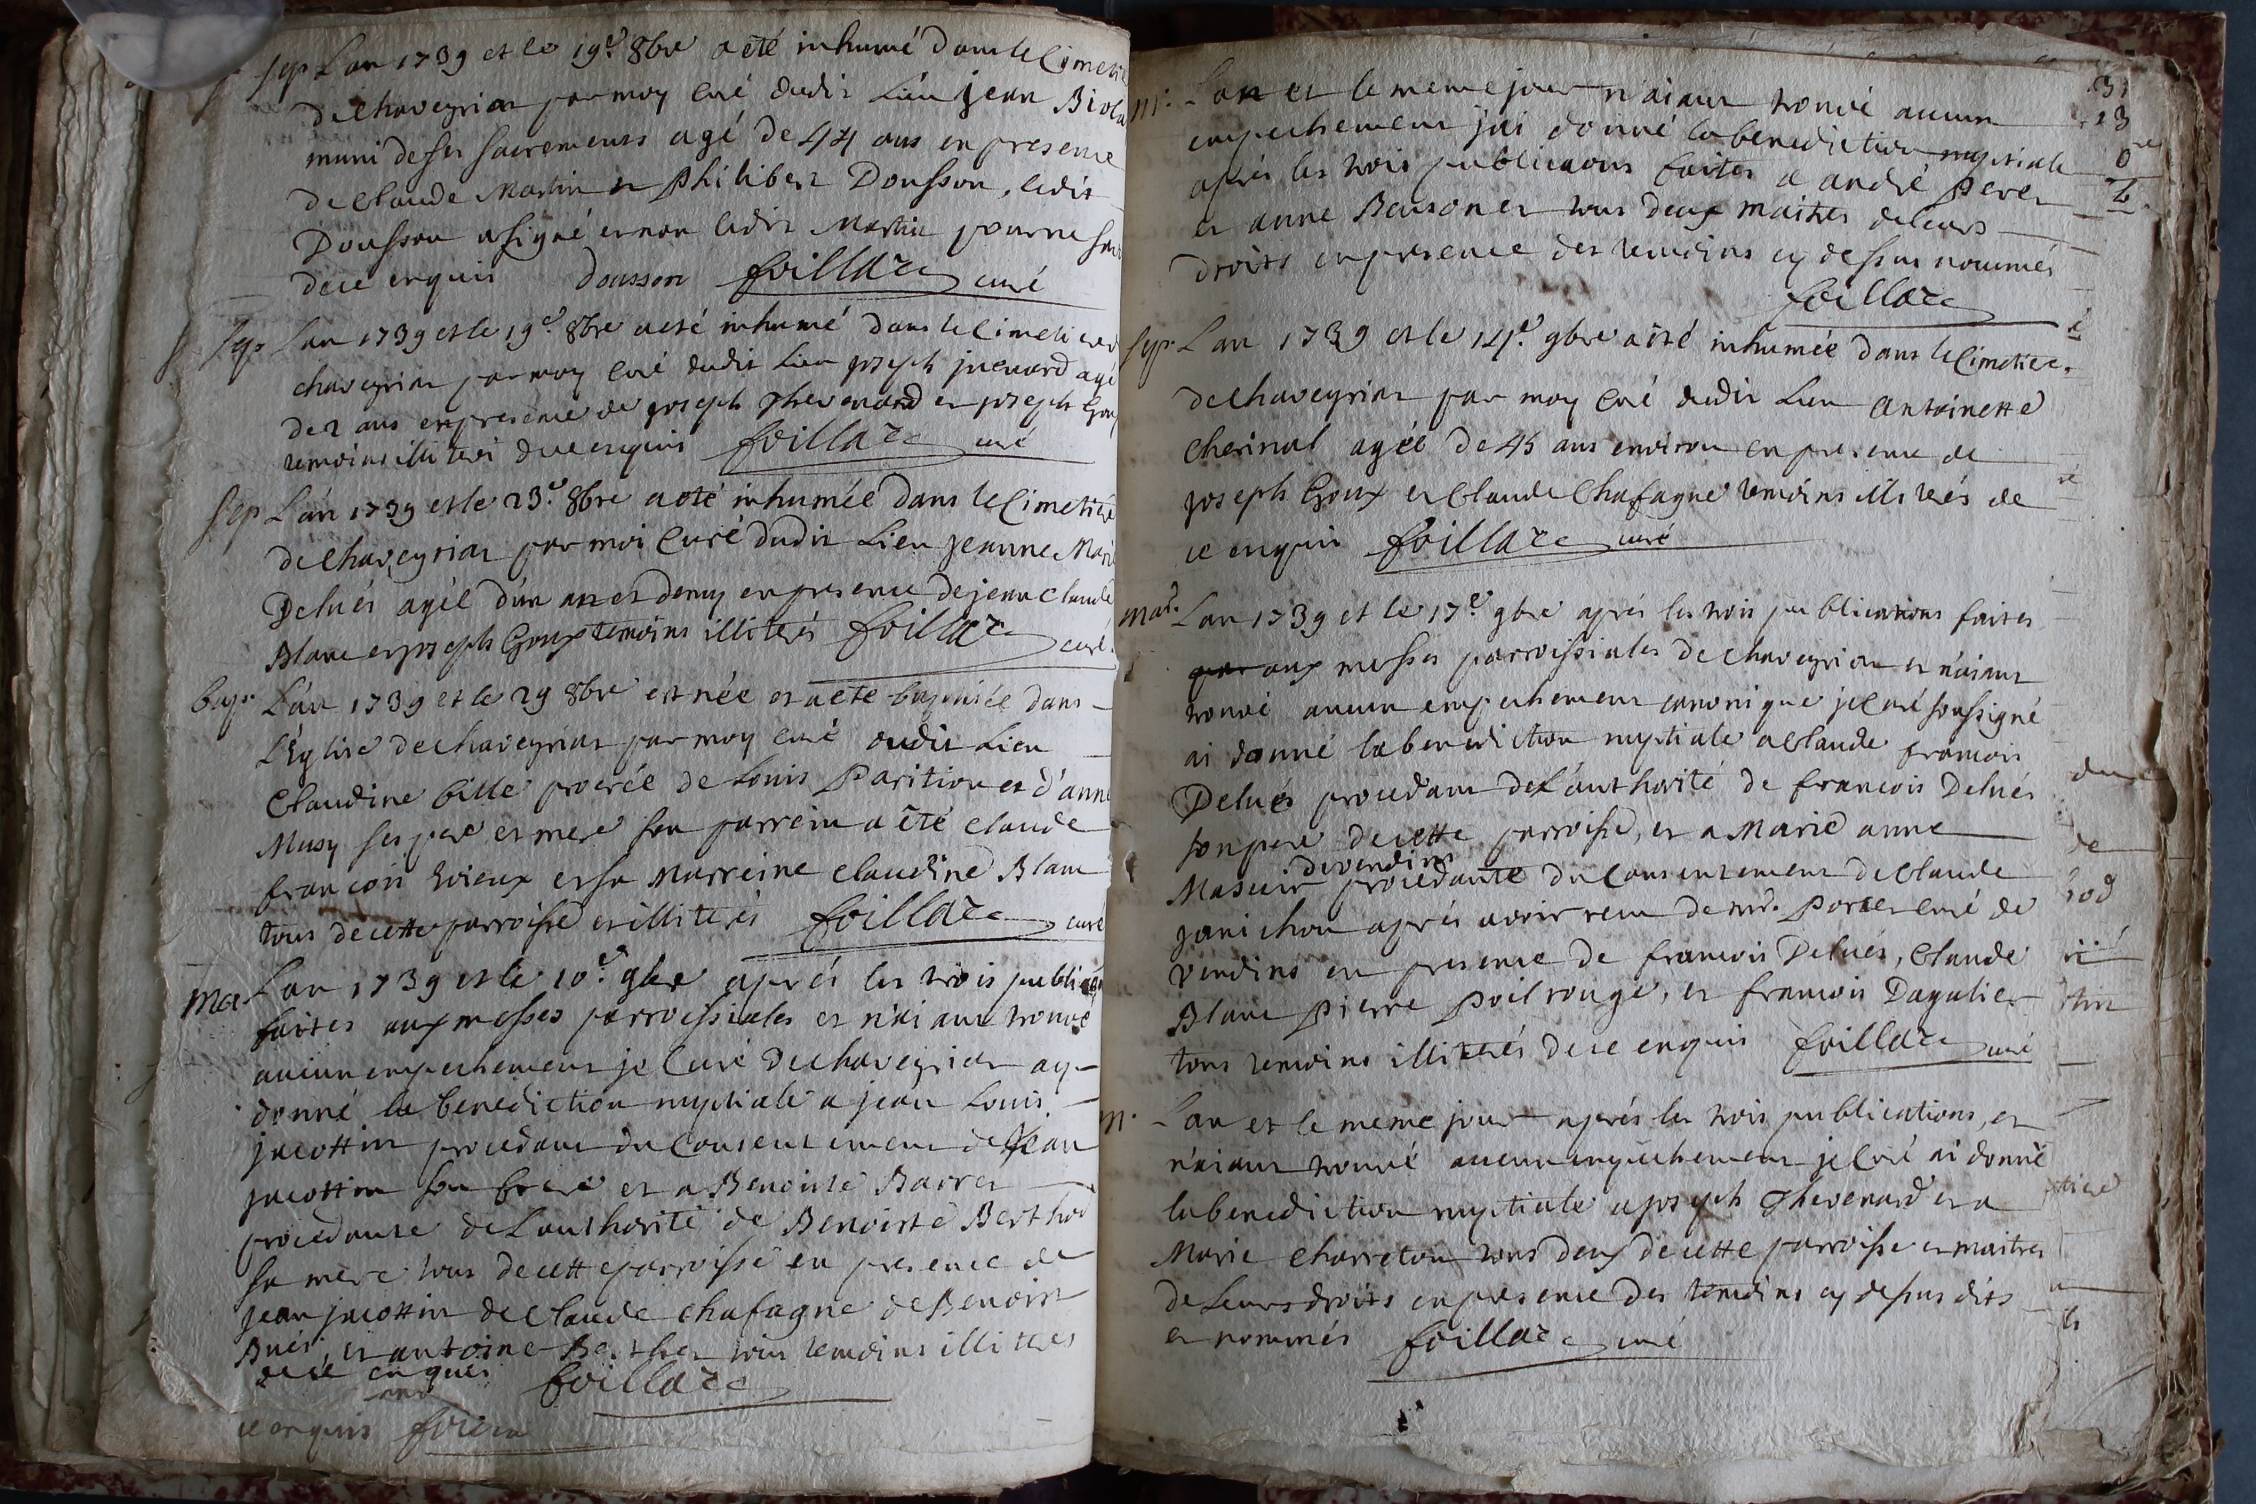 sep L'an 1739 et le 19e. 8bre a eté inhumé dans le Cimeti
de Chaveyriat par moy curé dudit Lieu jean Biola
muni de ses sacrements agé de 44 ans en presence
de Claude Martin et philibert Dousson, ledit
Dousson a signé et non ledit Martin pour ne
de ce enquis dousson foillar curé
sep. L'an 1739 et le 19e. 8bre a eté inhumé dans le Cimeti
chaveyriat par moy curé dudit Lieu joseph juenard agé
de 2 ans en presence de joseph Thevenard et joseph Gou
temoins illiterés de ce enquis foillar curé
sep L'an 1739 et le 23e. 8bre a eté inhumée dans le Cimetiere
de Chaveyriat par moi Curé dudit Lieu jeanne Mari
Delués agée d'un an et demy en presence de jean claude
Blanc et joseph Goux temoins illiterés foillar curé.
bap. L'an 1739 et le 29 8bre est née et a eté baptisée dans
L'Eglise de chaveyriat par moy curé dudit Lieu
Claudine fille procrée de Louis Parition et d'anne
Musy ses pere et mere son parrein a été claude
francois vieux et sa Marreine claudine Blanc
tous de cette parroisse et illiterés foillar curé
Mar L'an 1739 et le 10e. 9bre aprés les trois publica
faites aux messes parroissiales et n'aiant trouvé
aucun empechement je Curé de chaveyriat ay
donné la benediction nuptiale a jean Louis
jacottin procedant du Consentement de jean
jacottin son frere et a Benoite Barret
procedante de L'authorité de Benoiste Berthod
sa mere tous de cette parroisse en presence de
jean jacottin de Claude chafagne de Benoist
Bués, et antoine Berthet tous temoins illiterés
de ce enquis foillar
ce enquis
m. L'an et le meme jour n'aiant trouvé aucun
empechement j'ai donné la benediction nuptiale
aprés les trois publications faites a andré perer
et anne Bensoner tous deux maitres de leurs
droits en presence des temoins cy dessus nommés
foillar
sep. L'an 1739 et le 14e. 9bre a été inhumée dans le Cimetiere
de Chaveyriat par moy curé dudit Lieu antoinette
cherinal agée de 45 ans environ en presence de
joseph Goux et Claude Chafagne temoins illiterés de
ce enquis foillar curé
Mar. L'an 1739 et le 17e 9bre aprés les trois publications faites
aux messes parroissiales de chaveyriat et n'aiant
trouvé aucun empechement canonique je curé soussigné
ai donné la benediction nuptiale a Claude francois
Delués procedant de L'authorité de francois Delués
son pere de cette parroisse, et a Marie anne
de vendins
Masuir procedante du Consentement de Claude
janichon aprés avoir receu de mr. Porret curé de
vendins en presence de francois Delués, Claude
Blanc pierre poilrouge, et francois Dagalier
tous temoins illiterés de ce enquis foillar curé
m. L'an et le meme jour aprés les trois publications, et
n'aiant trouvé aucun empechement je Curé ai donné
la benediction nuptiale a joseph Thevenard et a
Marie charreton tous deux de cette parroisse et maitres
de Leurs droits en presence des temoins cy dessus dits
et nommés foillar curé